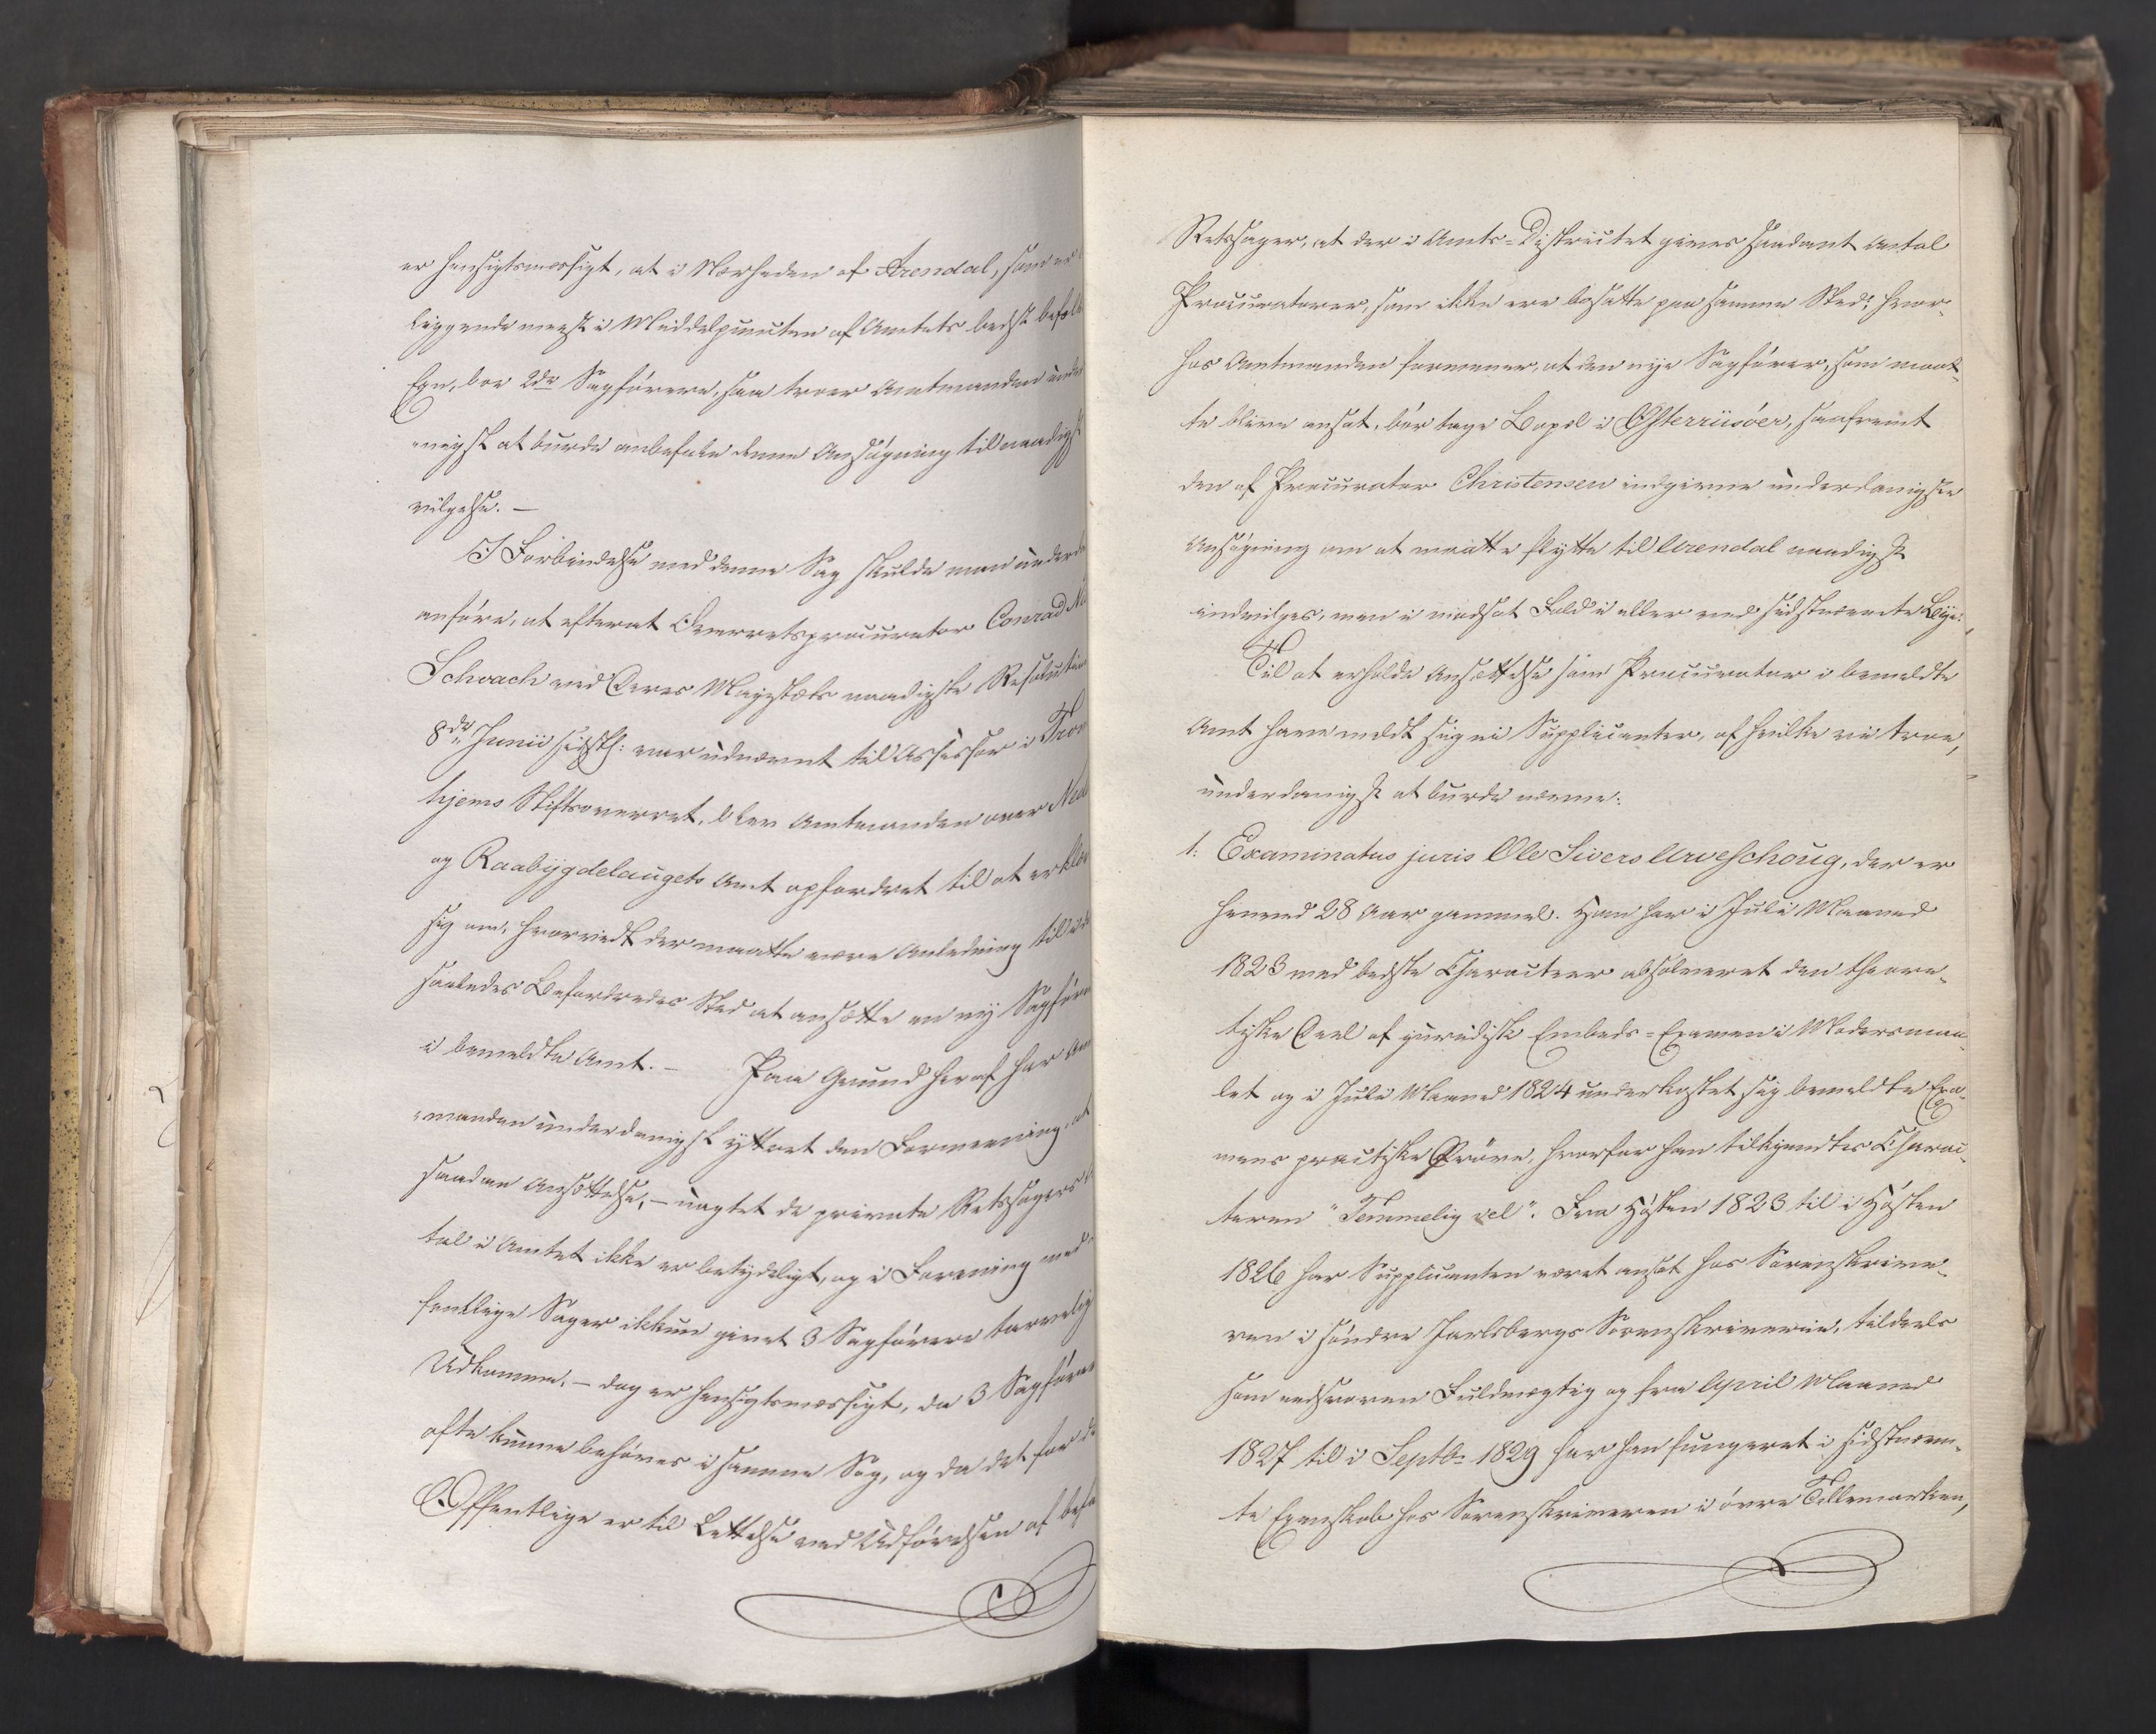 er hensigtsmæssigt, at i Nærheden af Arendal, som er
liggende meest i Middelpuncten af Amtets bedst befolk
Egn, boe 2de Sagførere, saa troer Amtmanden under
„nigst at burde anbefale denne Ansøgning til naadigst
vilgelse. —
I Forbindelse med denne Sag skulde man underd
anføre, at efterat Overretsprocurator Conrad Ni
Schwach ved Deres Majestæts naadigste Resolution
8de Junii sidstl: var udnævnt til Assessor i Tron
hjems Stiftsoverret, blev Amtmanden over Ned
og Raabygdelaugets Amt opfordret til at erklæ
sig om, hvorvidt der maatte være Anledning til i d
saaledes Befordredes Sted at ansætte en ny Sagføre
i bemeldte Amt. — Paa Grund heraf har Am
„manden underdanigst yttret den Formeening, at
saadan Ansættelse, — uagtet de private Retssagers
tal i Amtet ikke er betydeligt, og i Forening med
fentlige Sager ikkun givet 3 Sagførere tarvelig
Udkomme, — dog er hensigtsmæssigt, da 3 Sagføre
ofte kunne behøves i samme Sag, og da det for de
Offentlige er til Lettelse ved Udførelsen af bef
Retssager, at der i Amts-Districtet gives saadant Antal
Procuratorer, som ikke ere bosatte paa samme Sted; hvor-
hos Amtmanden formener, at den nye Sagfører, som maat-
te blive ansat, bør tage Bopæl i Østerriisøer, saafremt
den af Procurator Christensen indgivne underdanigste
Ansøgning om at maatte flytte til Arendal naadigst
indvilges, men i modsat Fald i eller ved sidstnævnte Bye.
Til at erholde Ansættelse som Procurator i bemeldte
Amt have meldt sig ni Supplicanter, af hvilke vi troe,
underdanigst at burde nævne:
1. Examinatus juris Ole Sivers Urveschoug, der er
henved 28 Aar gammel. Han har i Julii Maaned
1823 med bedste Characteer absolveret den theore-
tiske Deel af juridisk Embeds-Examen i Modersmaa-
let og i Julii Maaned 1824 underkastet sig bemeldte Exa-
mens practiske Prøve, hvorfor han tilkjendtes Charac-
teren "Temmelig vel". Fra Høsten 1823 til i Høsten
1826 har Supplicanten været ansat hos Sorenskrive-
ren i søndre Jarlsbergs Sorenskriverie, tildeels
som eedsvoren Fuldmægtig og fra April Maaned
1827 til i Septbr 1829 har han fungeret i sidstnævn-
te Egenskab hos Sorenskriveren i øvre Tellemarken,